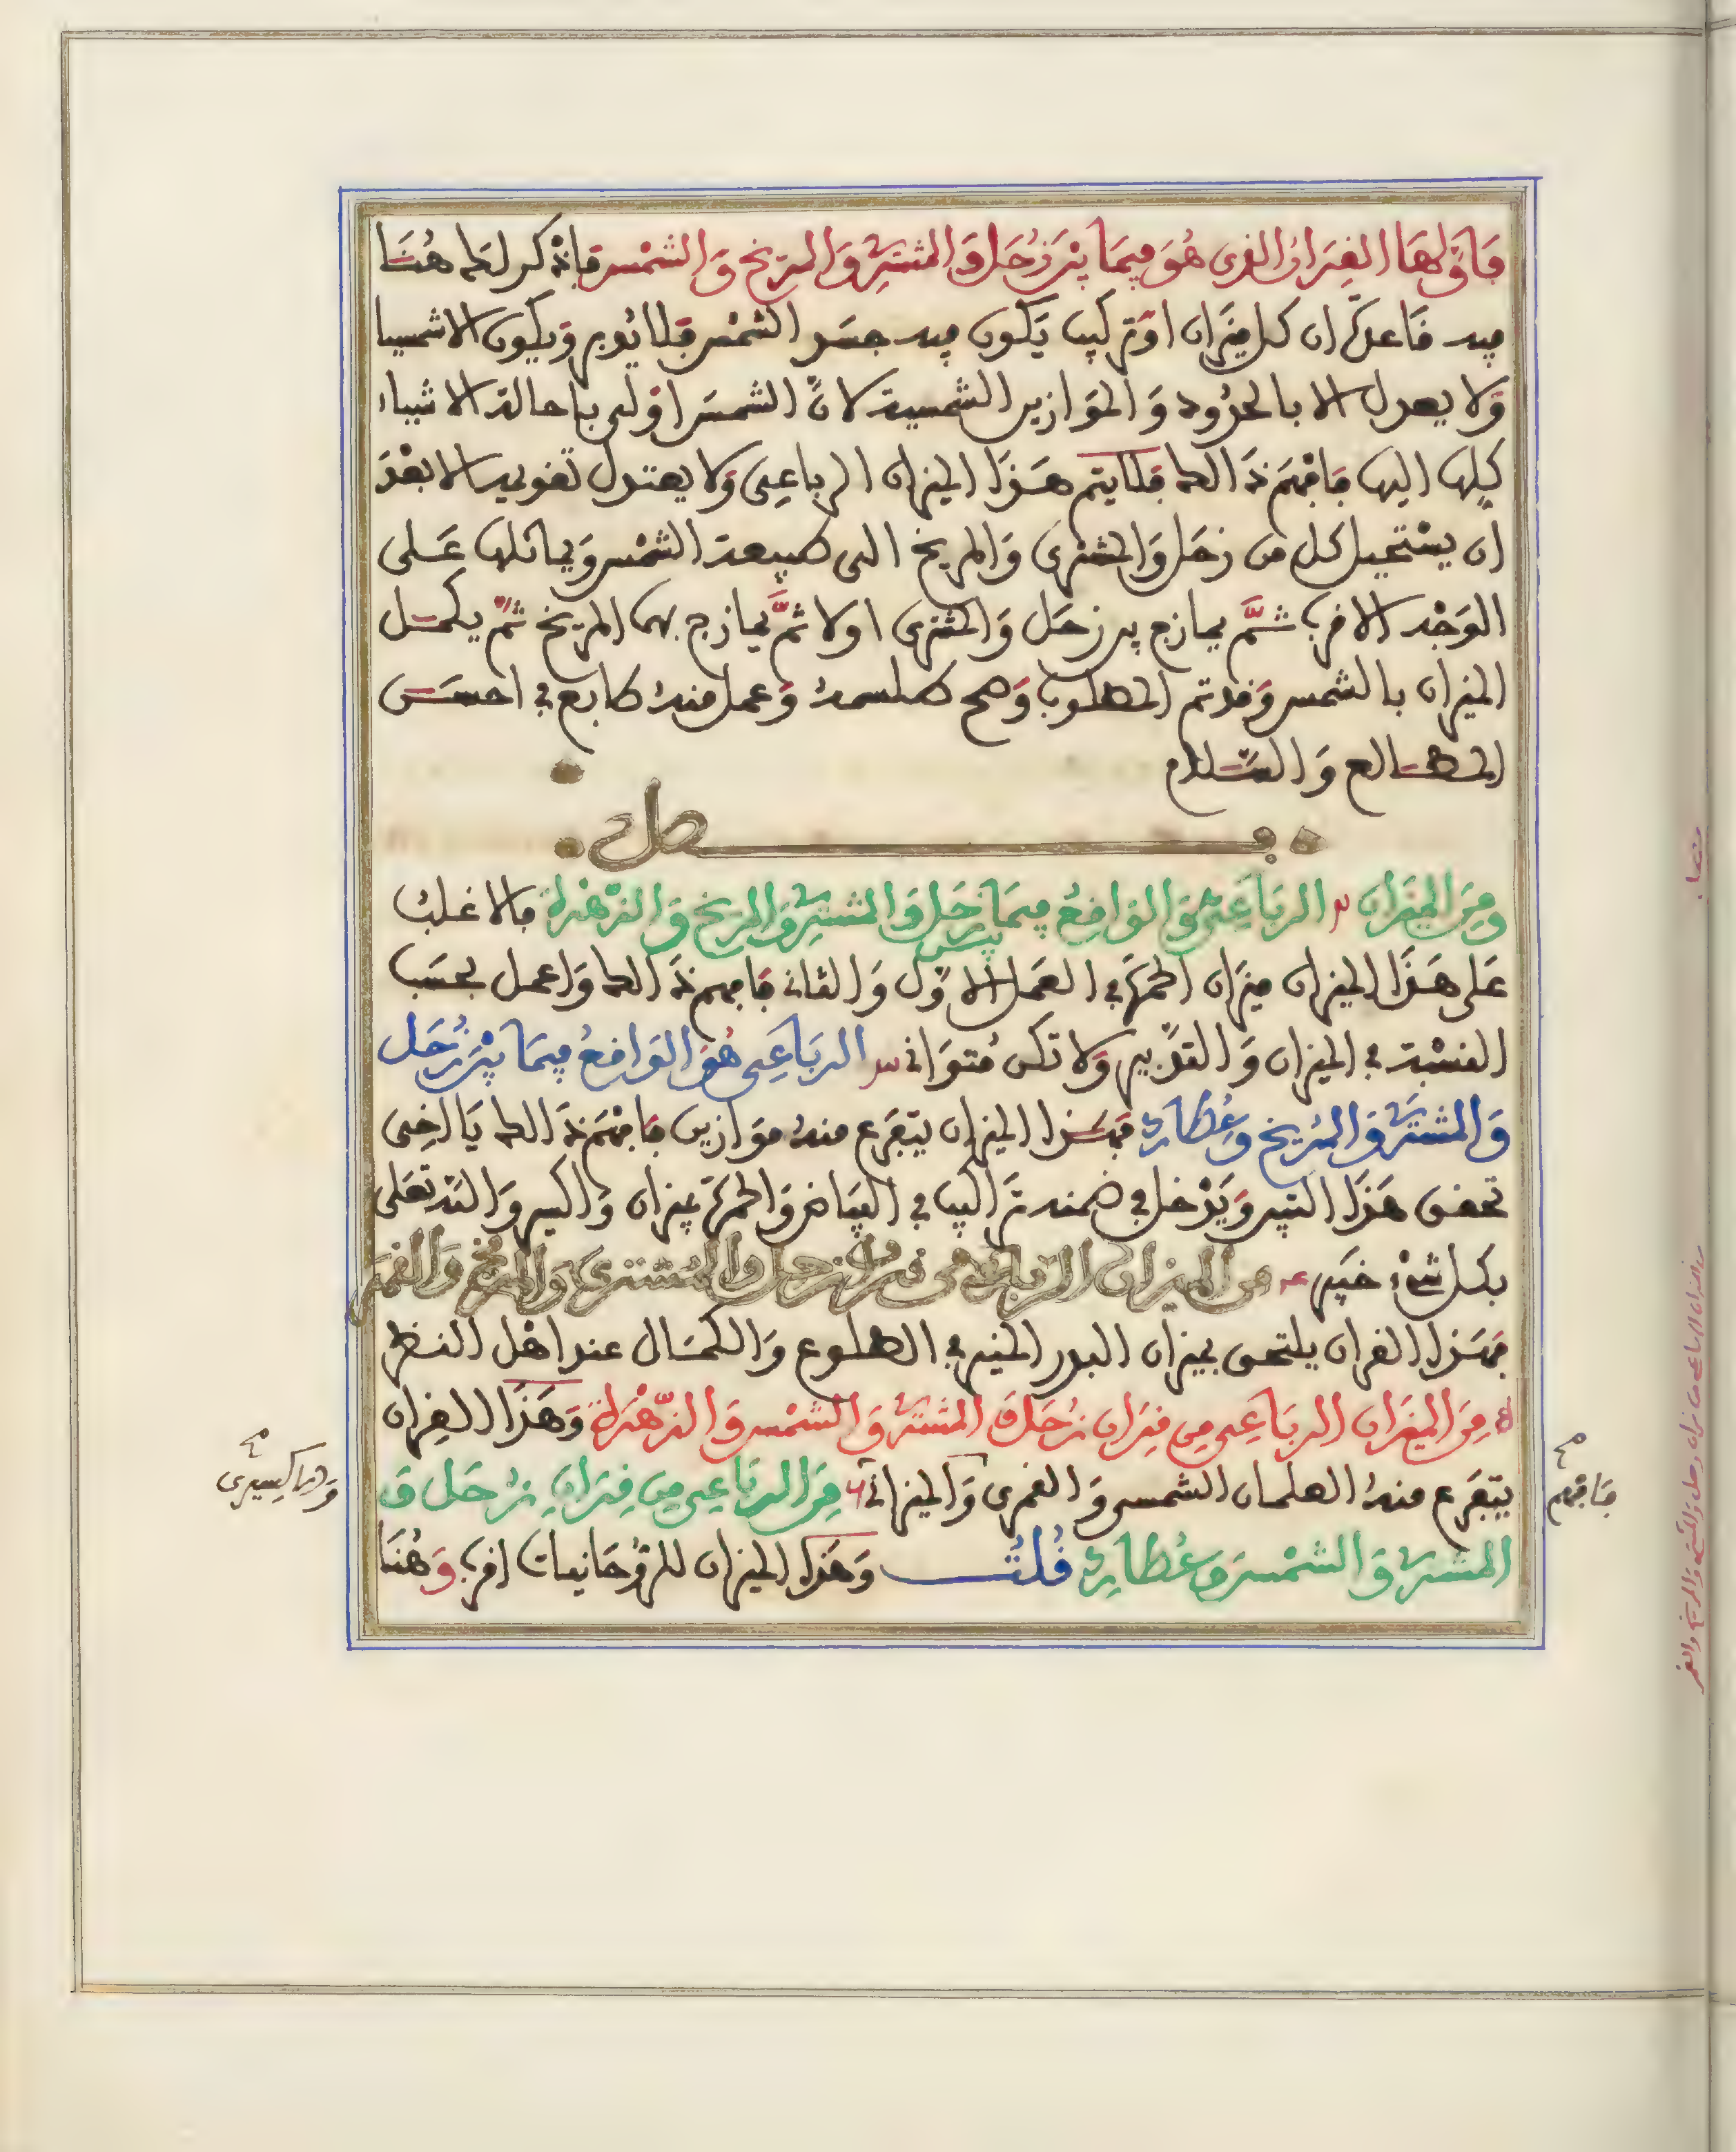 فَأوّلها القِرَانُ الذي هُوَ فِيمَا بَيْنَ زُحَل وَالمشتَرِي وَالمرِّيخ وَالشمْسِ فاذكر لك هُنَا
فيه فاعلم ان كل ميزان او تركيب يكون فيه جسد الشمس فلا يدبر ويكون الاشمسيا
ولا يعدل الا بالحدود والموازين الشمسية لانّ الشمس اولى باحالة الاشياء
كلها اليها فافهم ذالك فلا يتم هذا الميزان الرباعي ولا يعتدل تقويمه الا بعد
ان يستحيل كل من زحل والمشتري والمريخ الى طبيعة الشمس ويماثلها على
الوجه الاخر ثمّ يمازج بين زحل والمشتري اولا ثمّ يمازج بهما المريخ ثمّ يكمل
الميزان بالشمس وقد تم المطلوب وصح طلسمه وعمل منه طابع في احسن
المطالع والسّلام
فصل
ومِنَ الميزان ٢ الرباعي والواقع فيما بين زحل والمشتري والمريخ والزهرة فالاغلب
على هذا الميزان ميزان الحمرة في العمل الاوّل والثاني فافهم ذالك واعمل بحسب
النسْبة في الميزان والتدْبير ولا تكن مُتواني ٣ الرباعي هُوَ الواقع فيما بيْن زُحَل
والمشتري والمريخ وعُطارد فهذا الميزان يتفرع منه موازين فافهَم ذالك يا اخي
تحقق هذا السّير ويدْخل في ضمنه تراكيب في البياض والحمرة بميزان واكسير والله تعلى
بكل شيْء خبير ٤ من الميزان الرباعي من قران زحل والمشتري والمريخ والقمر
فهذا القران يلتحق بميزان البدر المنير في الطلوع والكمال عند اهل النظر
٥ مِنَ الميزان الرباعي من قِران زُحَل وَ المشتري والشمْس والزّهرة وهذا القران
يتفرع منه العلمان الشمسي والقمري والميزاني ٦ مِنَ الرباعي من قِران زُحَل وَ
المشتري والشمْس وعُطارد قُلتُ وهذا الميزان للرّوحانيات اخر وهُنَا
فافهم
والاكسيري
من الميزان الرباعي من قران زحل والمشتري والمريخ والقمر